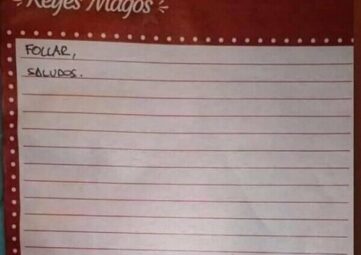 Reyes Magos
FOLLAR,
SALUDOS.